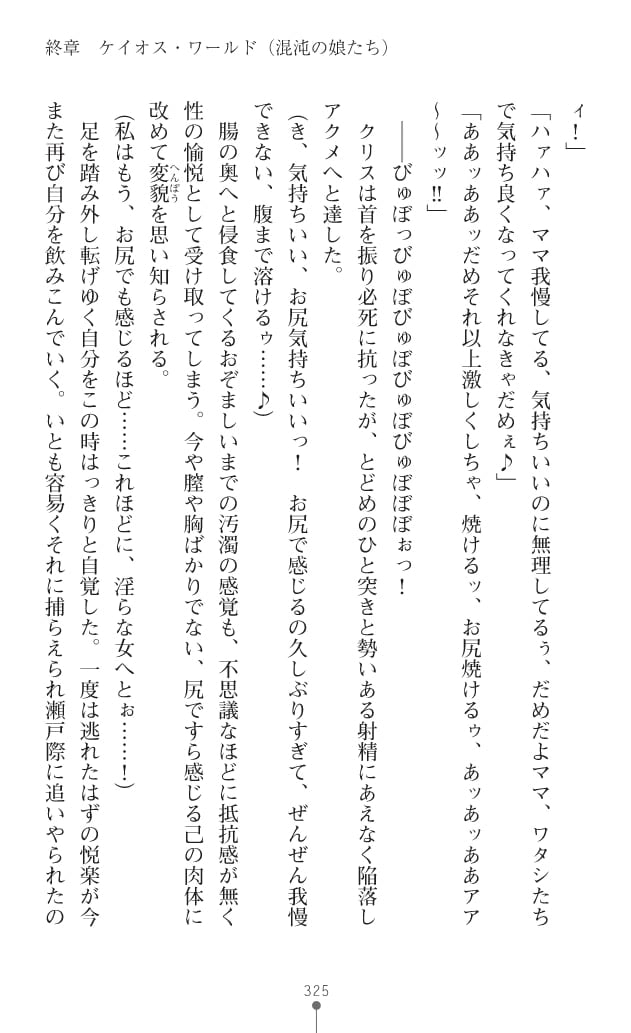 終章　ケイオス・ワールド（混沌の娘たち）
ィ！」
「ハァハァ、ママ我慢してる、気持ちいいのに無理してるぅ、だめだよママ、ワタシたち
で気持ち良くなってくれなきゃだめぇ♪」
「ああッああッだめそれ以上激しくしちゃ、焼けるッ、お尻焼けるゥ、あッあッああアア
～～ッッ!!」
――びゅぼっびゅぼびゅぼびゅぼびゅぼぼぼぉっ！
クリスは首を振り必死に抗ったが、とどめのひと突きと勢いある射精にあえなく陥落し
アクメへと達した。
（き、気持ちいい、お尻気持ちいいっ！　お尻で感じるの久しぶりすぎて、ぜんぜん我慢
できない、腹まで溶けるゥ……♪）
腸の奥へと侵食してくるおぞましいまでの汚濁の感覚も、不思議なほどに抵抗感が無く
性の愉悦として受け取ってしまう。今や膣や胸ばかりでない、尻ですら感じる己の肉体に
改めて変貌へんぼうを思い知らされる。
（私はもう、お尻でも感じるほど……これほどに、淫らな女へとぉ……！）
足を踏み外し転げゆく自分をこの時はっきりと自覚した。一度は逃れたはずの悦楽が今
また再び自分を飲みこんでいく。いとも容易くそれに捕らえられ瀬戸際に追いやられたの
325